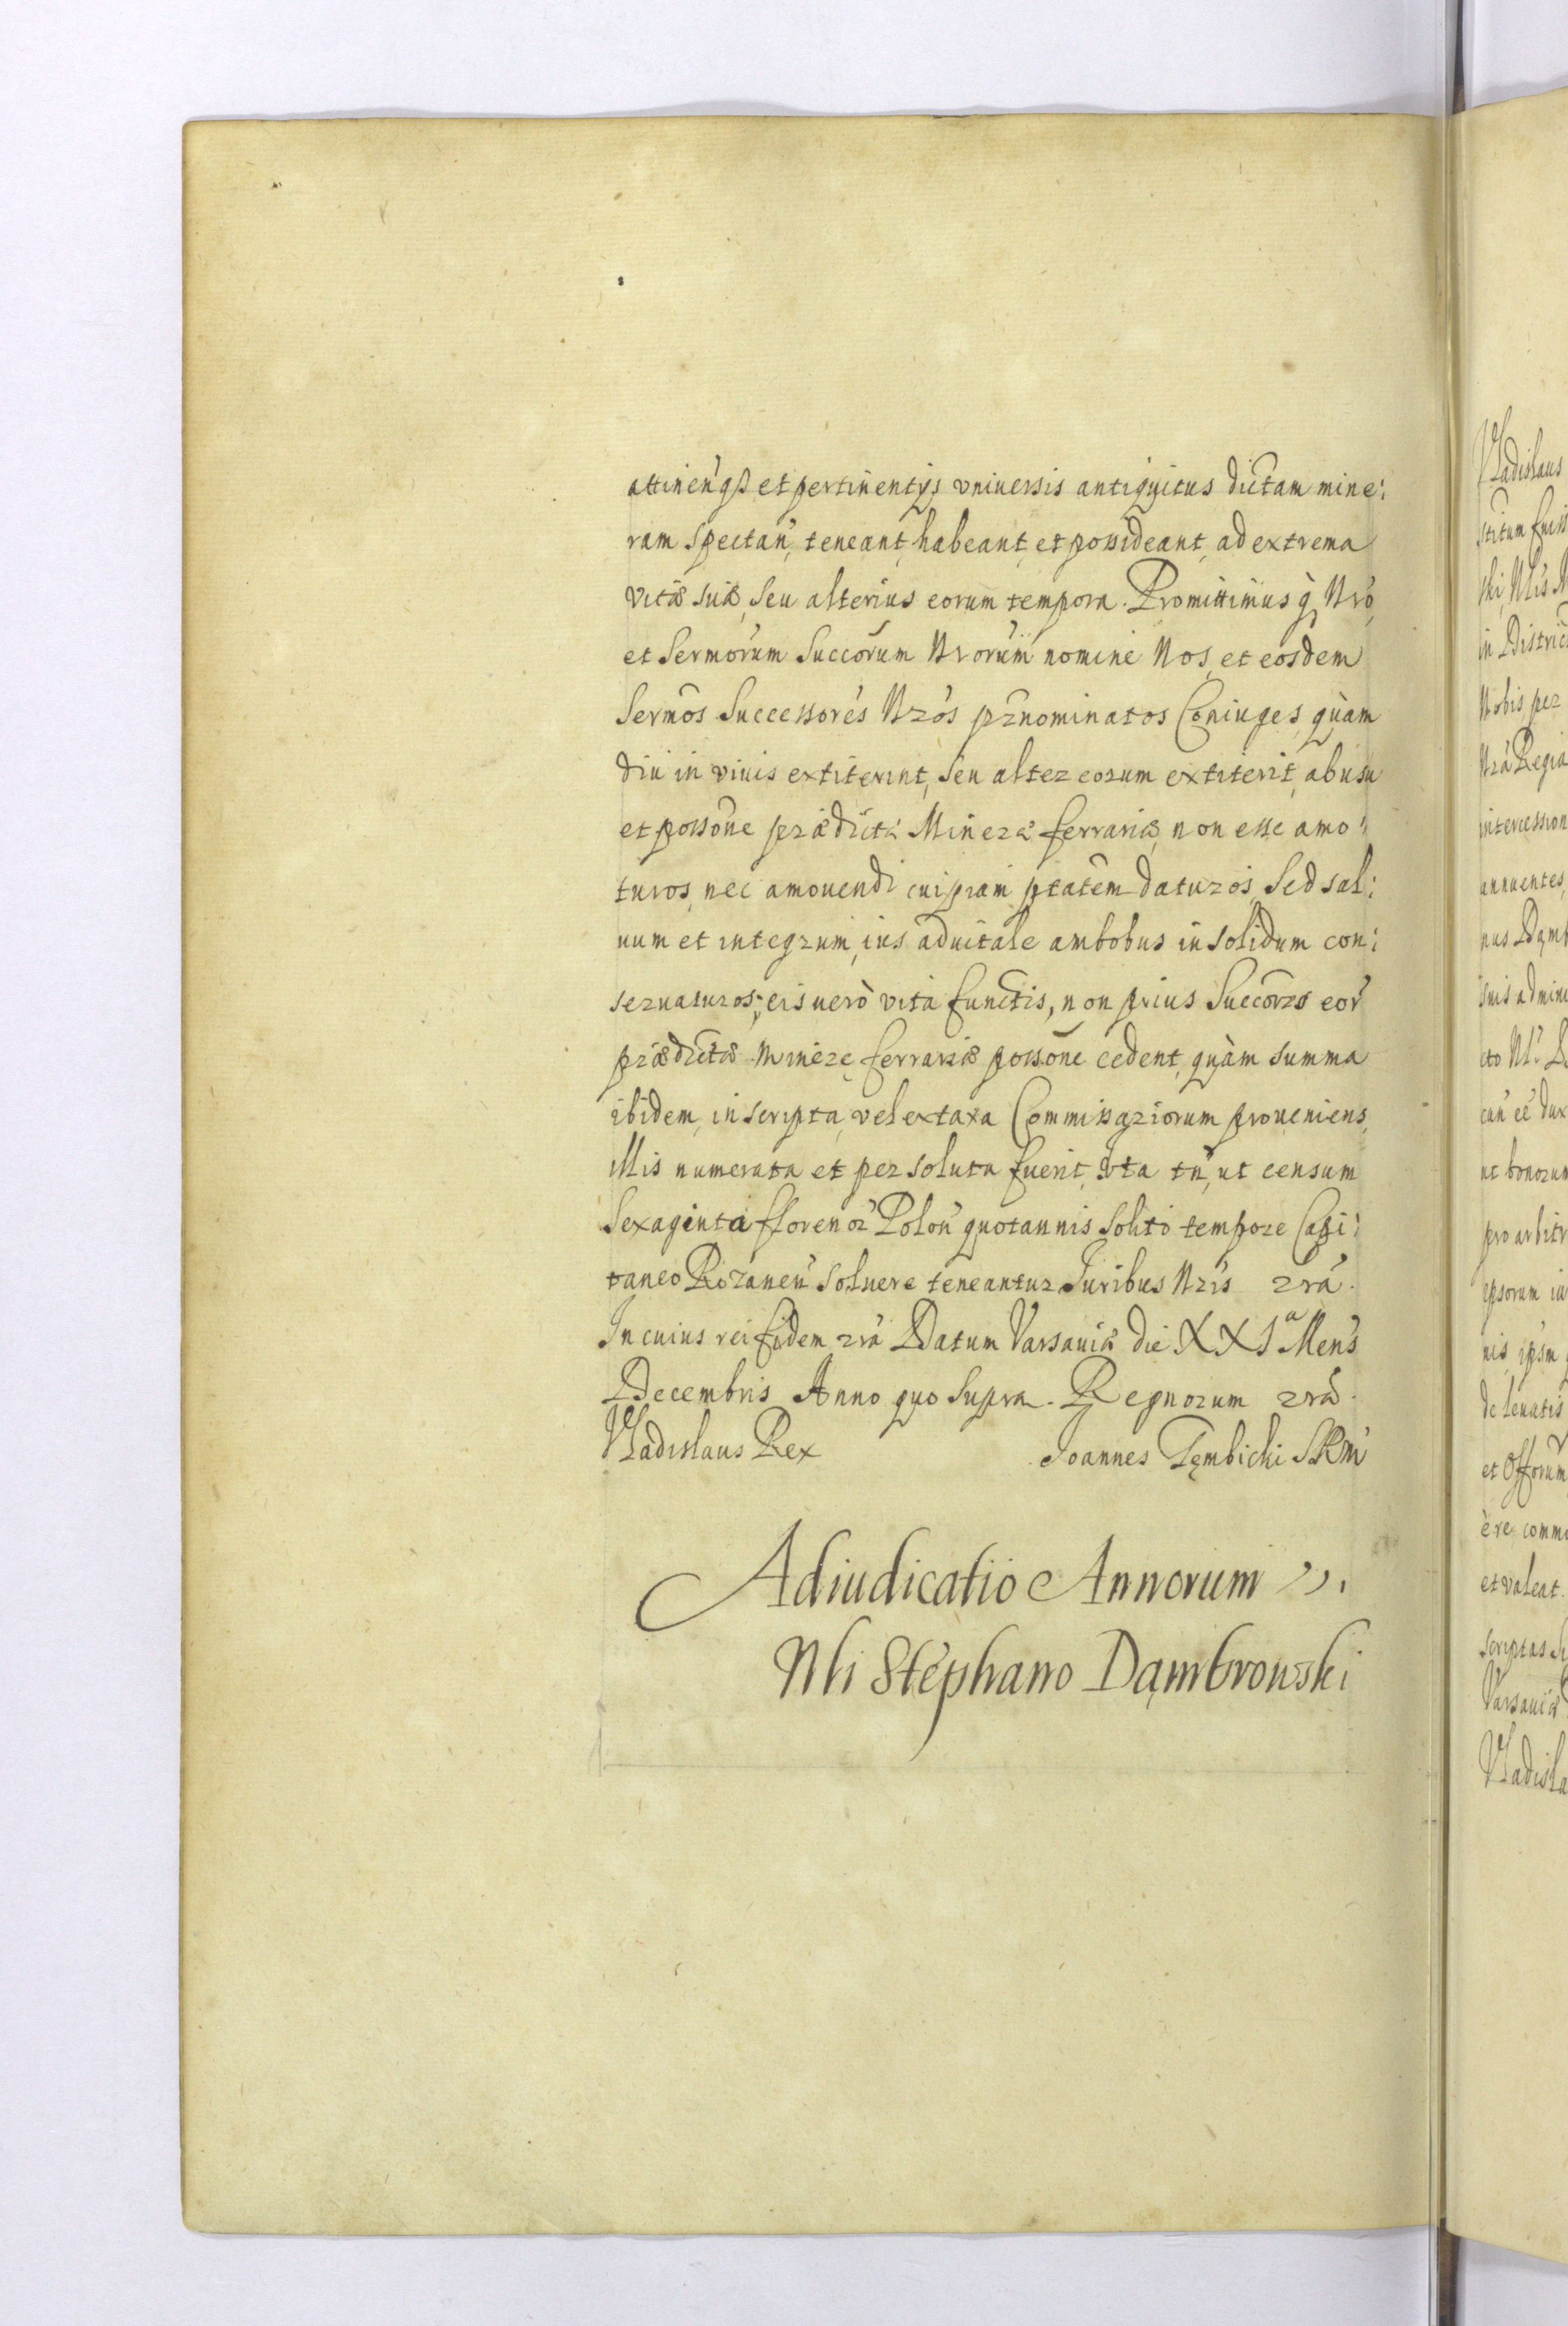 attinen'qß et pertinentÿs vniuersis antiquitus dictam mine:
ram spectan', teneant, habeant, et possideant, ad extrema
vitæ suæ, seu alterius eorum tempora. Promittimus q, Nro,
et Sermorum Succorum Nrorum nomine Nos, et eosdem
Sermos Successores Nros prnominatos Coniuges, quàm
diu in viuis extiterint, seu alter eorum extiterit, ab usu
et possone prædictæ Mineræ ferrariæ, non esse amo:
turos, nec amouendi cuipiam ptatem daturos, Sed sal:
uum et integrum, ius aduitale ambobus in solidum con:
seruaturos; eis uerò vita functis, non prius Succorzs eor'
prædictæ Minere ferrariæ possone cedent, quàm summa
ibidem, inscripta, vel ex taxa Commissariorum proueniens,
illis numerata et persoluta fuerit, Ita tn', ut censum
Sexaginta florenor' Polon' quotannis solito tempore Capi:
taneo Rozanen' soluere teneantur Juribus Nris zra.
In cuius rei fidem zra Datum Varsauiæ die XXIa Mens
Decembris Anno quo supra. Regnorum zra.
Vladislaus Rex Joannes Tęmbicki SRM
Adiudicatio Annorum
Nli Stephano Dąmbrowski
Vladislaus
in Distric
Nobis per
Nra Regia
intercession
annuentes,
ut bonorum
pro arbitr
ipsorum iu
de leuatis
et Offorum
et valeat.
Varsauiæ
Vladisla